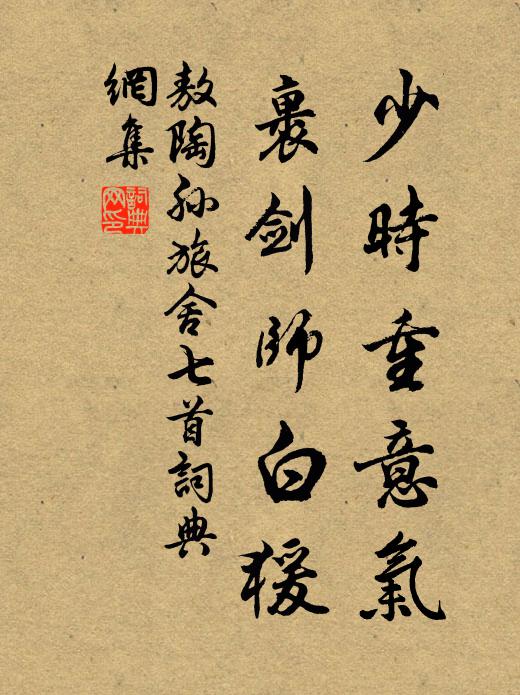 少時重意氣
裹剑師白猨
敖陶孙旅舍七首詞典
網集
詞典网印